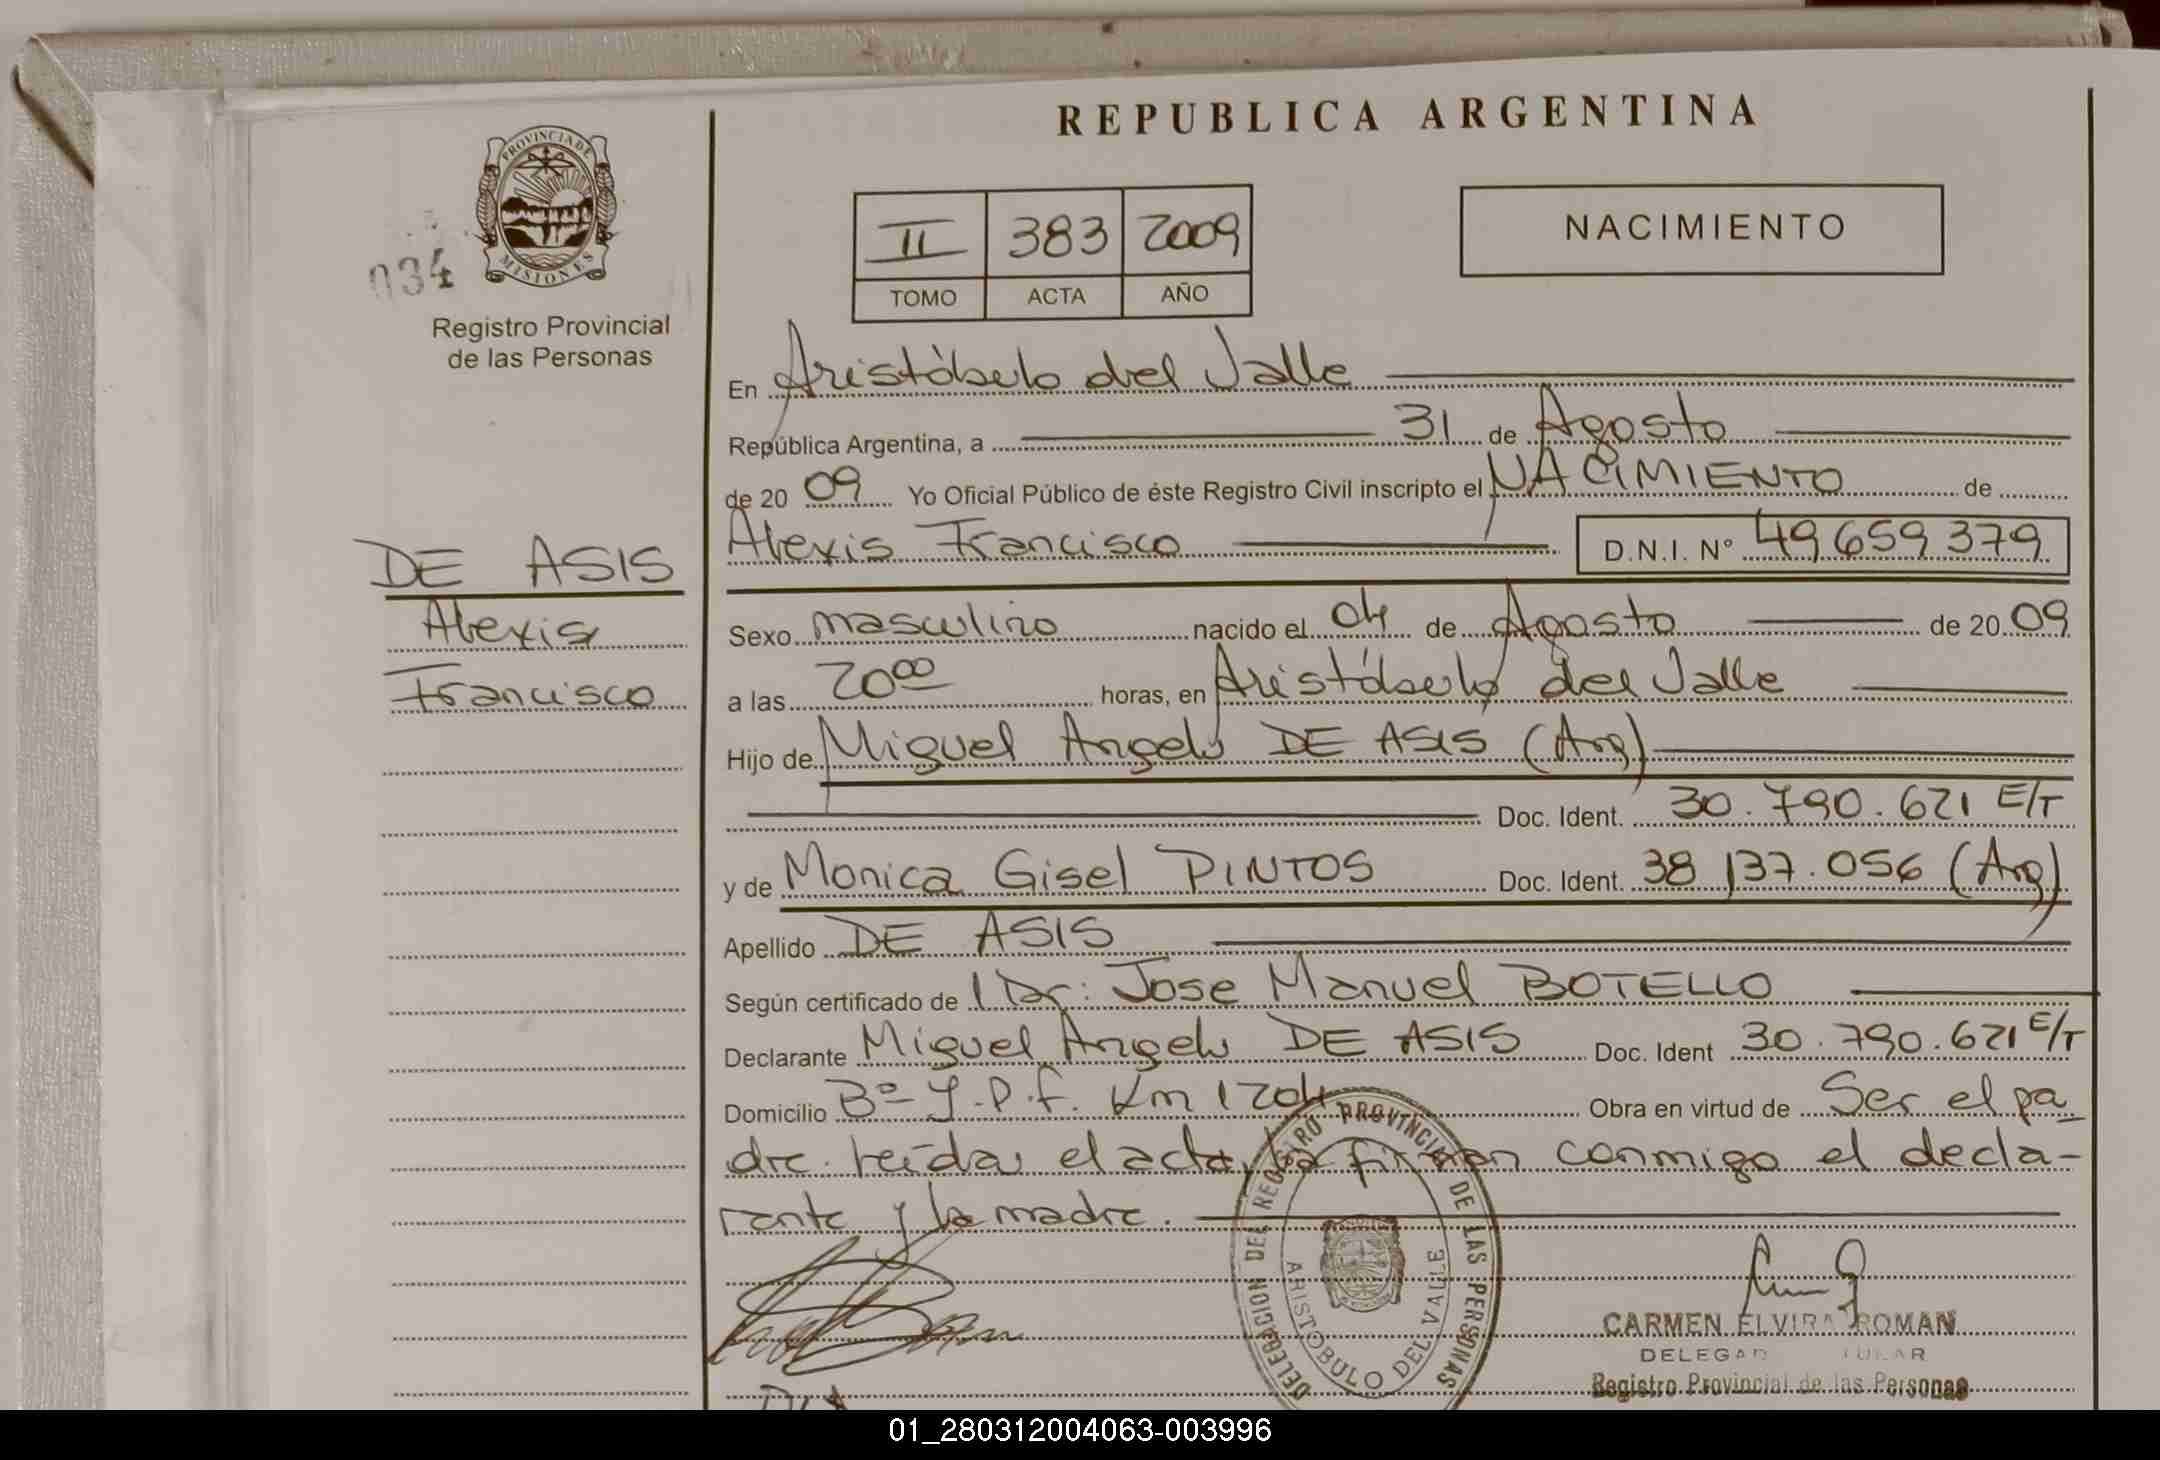 REPUBLICA ARGENTINA
PROVINCIA DE MISIONES
034
Registro Provincial
de las Personas
II 383 2009
TOMO ACTA AÑO
NACIMIENTO
En Aristóbulo del Valle
República Argentina, a 31 de Agosto
de 20 09 Yo Oficial Público de éste Registro Civil inscripto el NACIMIENTO de
Alexis Francisco D.N.I. Nº 49.659.379
DE ASIS
Alexis
Francisco
Sexo masculino nacido el 04 de Agosto de 20 09
a las 20 00 horas, en Aristóbulo del Valle
Hijo de Miguel Angelo DE ASIS (Arg)
Doc. Ident. 30.790.621 E/T
y de Monica Gisel PINTOS Doc. Ident. 38.137.056 (Arg)
Apellido DE ASIS
Según certificado de Dr: Jose Manuel BOTELLO
Declarante Miguel Angelo DE ASIS Doc. Ident 30.790.621 E/T
Domicilio Bº Y.P.F. Km 1204 Obra en virtud de Ser el pa-
dre. Leída el acta, la firman conmigo el decla-
rante y la madre.
DELEGACION DEL REGISTRO PROVINCIAL DE LAS PERSONAS
ARISTOBULO DEL VALLE
CARMEN ELVIRA ROMAN
Registro Provincial de las Personas
01_280312004063-003996